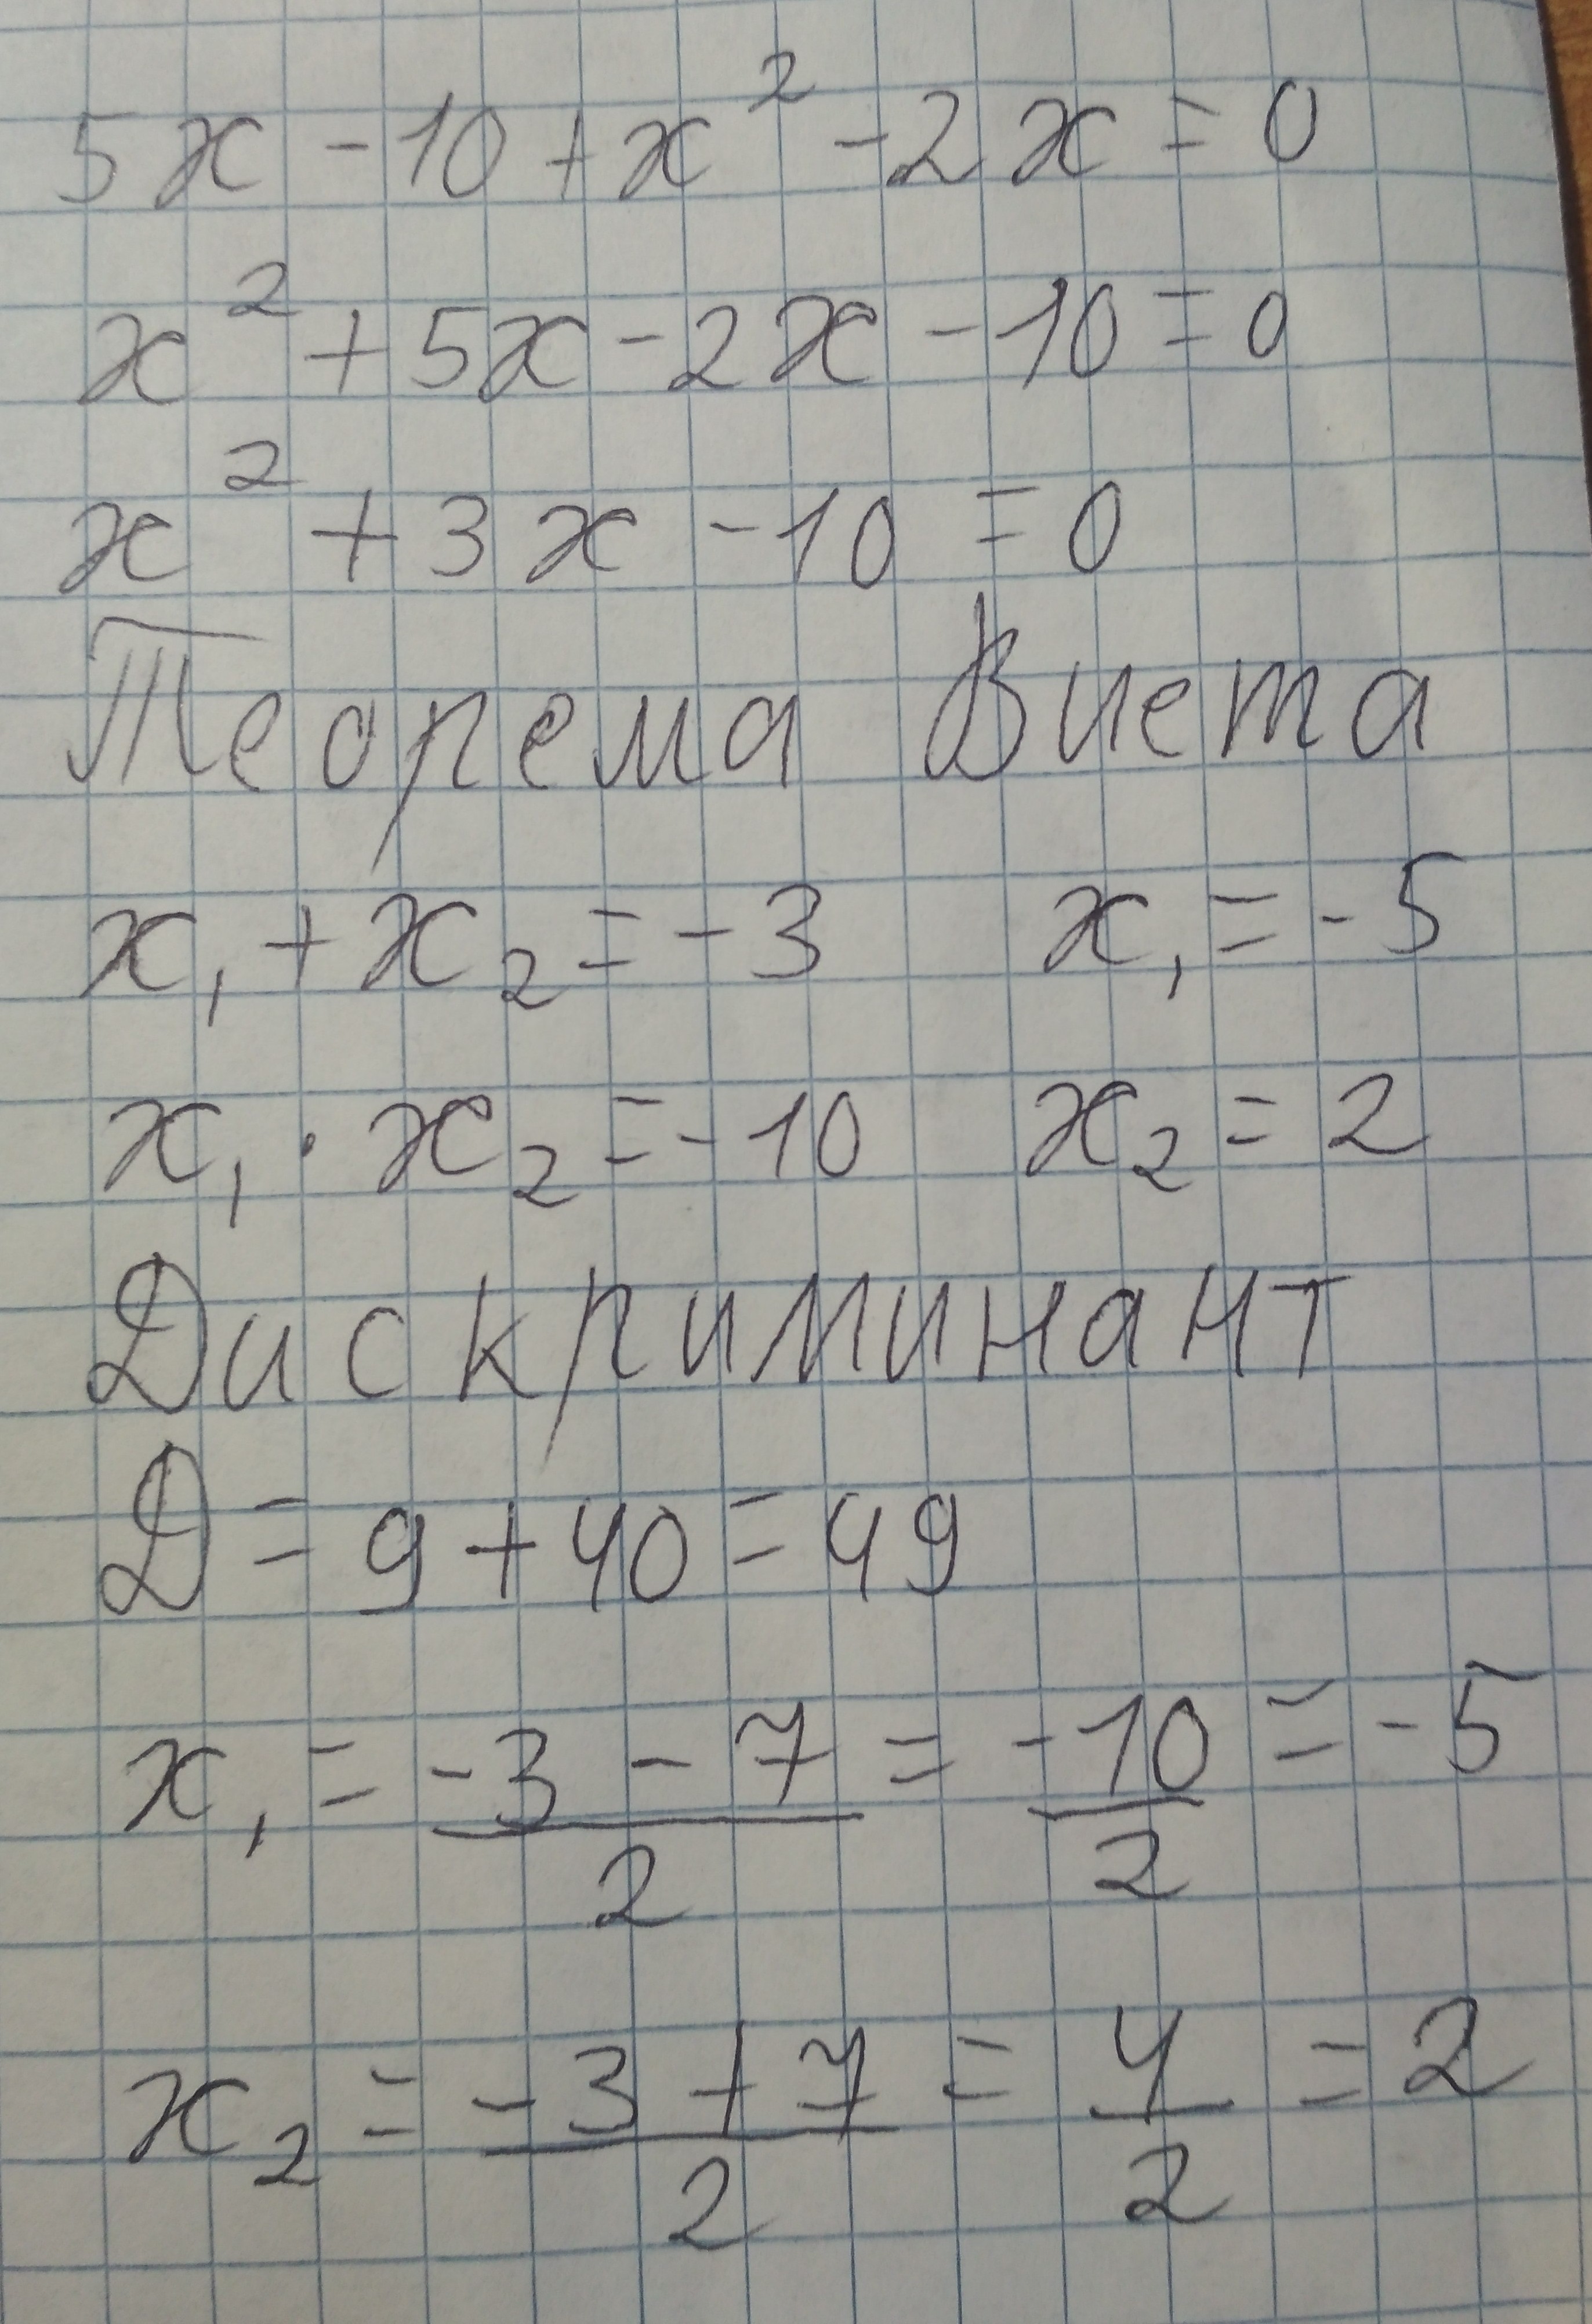 5x - 10 + x² - 2x = 0
x² + 5x - 2x - 10 = 0
x² + 3x - 10 = 0
Теорема Виета
x₁ + x₂ = -3 x₁ = -5
x₁ · x₂ = -10 x₂ = 2
Дискриминант
D = 9 + 40 = 49
x₁ = (-3 - 7)/2 = -10/2 = -5
x₂ = (-3 + 7)/2 = 4/2 = 2